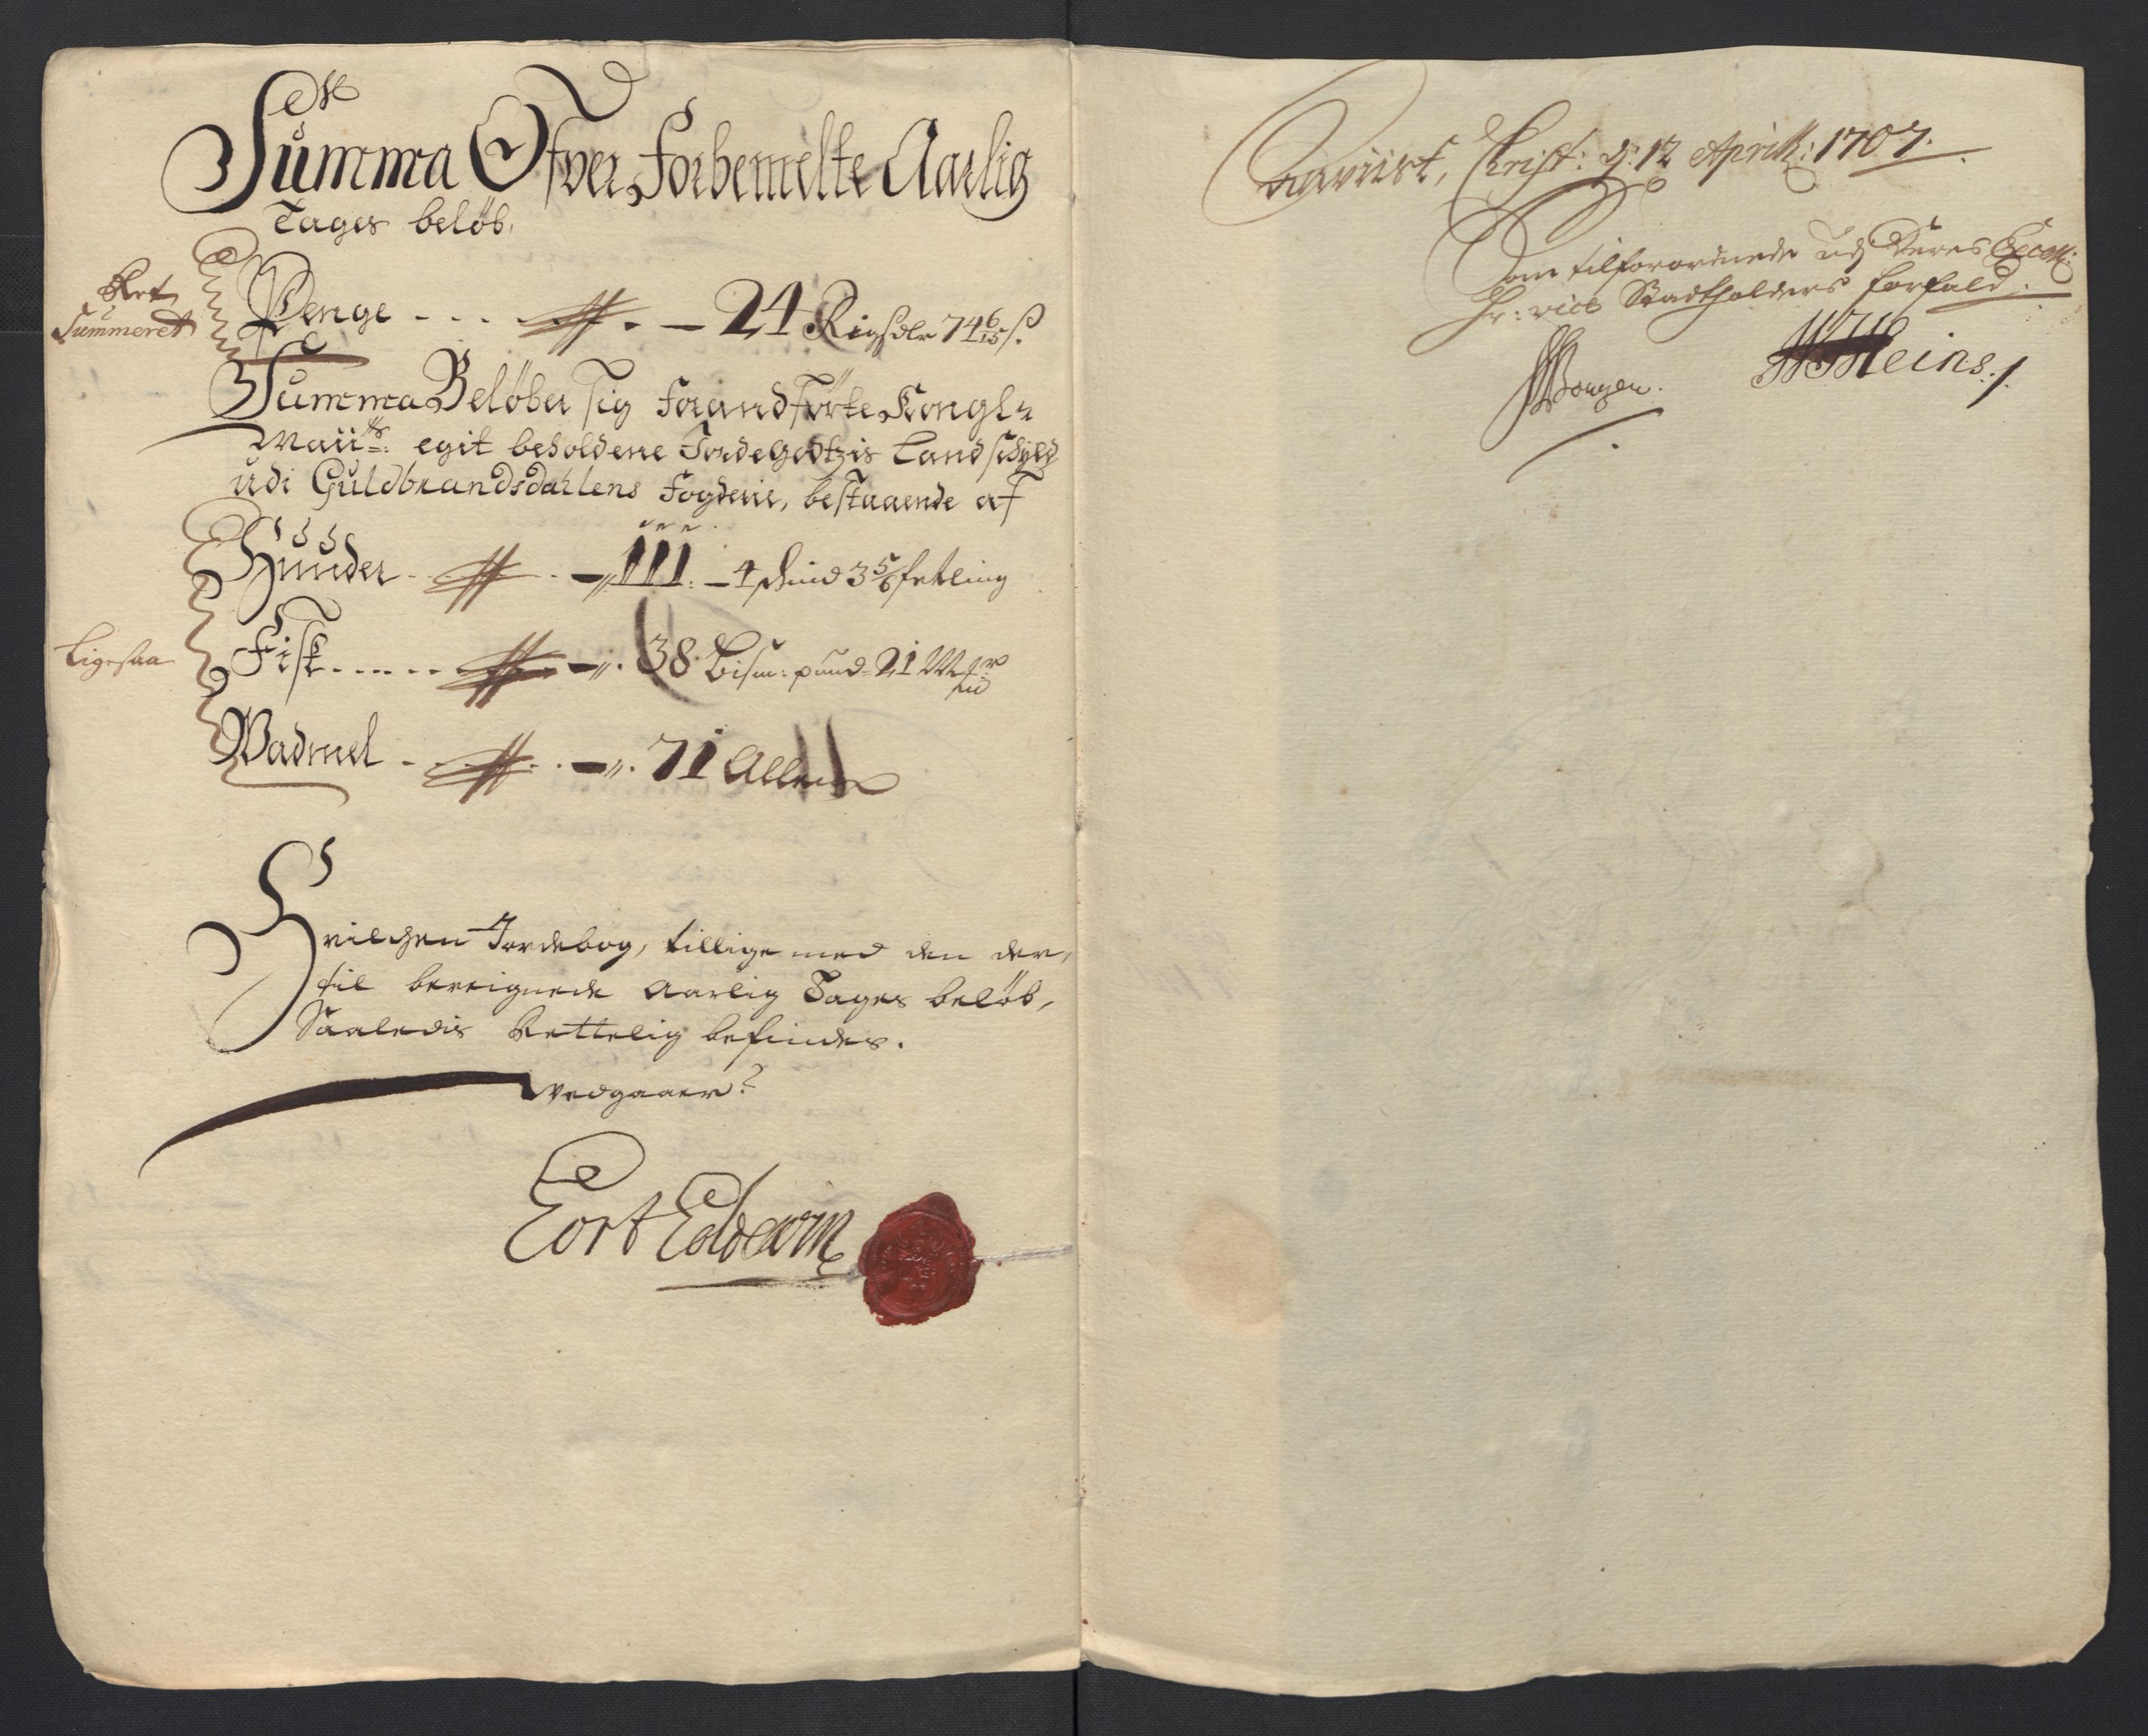 Summa Ofver Forbemelte Aarlig
Tages beløb.
Ret
Summeret
Penge - - - - 24 Rigsdlr 74 6/15 ß.
Summa Beløber sig forandførte Kongl:
Maÿts: egit beholdene JordeGodtzis Landschyld
udi Guldbrandsdahlens fogderie, bestaaende af
Huuder - - 111. - 4 skind 3 5/6 fetling
Ligesaa
Fisk - - - - - 38 Bism: pund 21 Mrk
Wadmel - - - 71 Allen
Hvilchen Jordebog, tillige med den der,
til beregnede Aarlig Tages beløb,
Saaledis Rettelig befindes.
Vedgaaer
Cort
Christ: d: 12 Aprill: 1707.
Som tilforordnede udj Deres Excell:
Hr: vice Stadtholders forfald.
Heins ./.